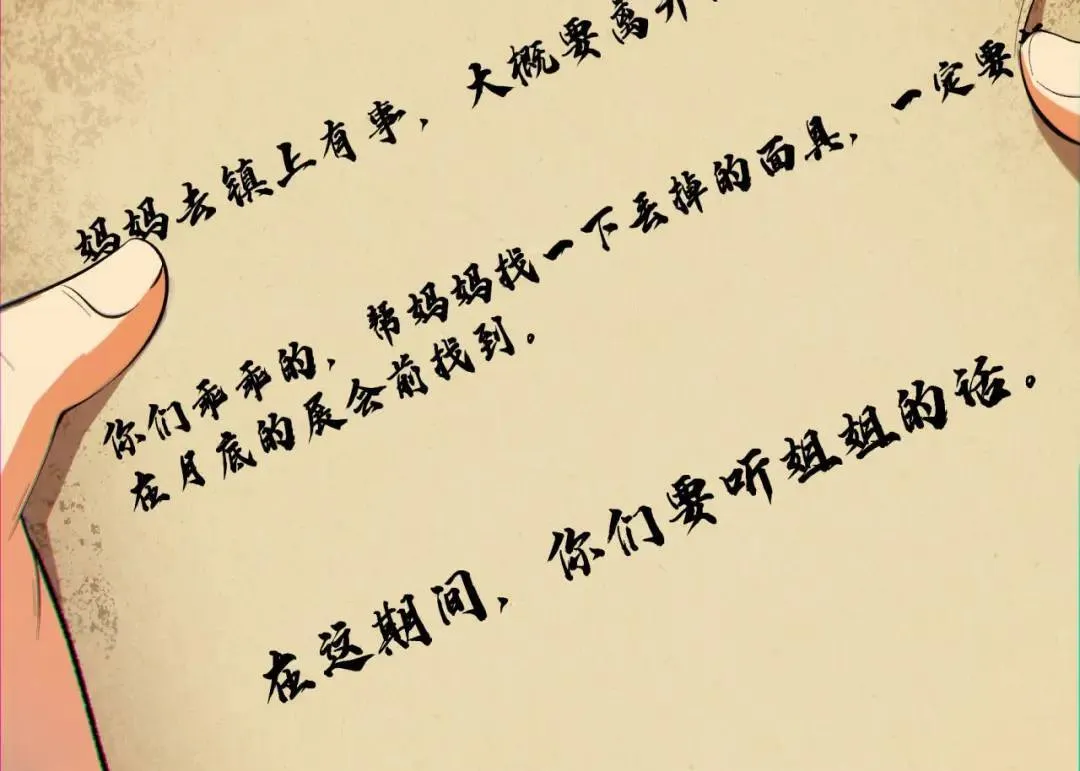 妈妈去镇上有事，大概要离开
你们乖乖的，帮妈妈找一下丢掉的面具，一定要
在月底的展会前找到。
在这期间，你们要听姐姐的话。